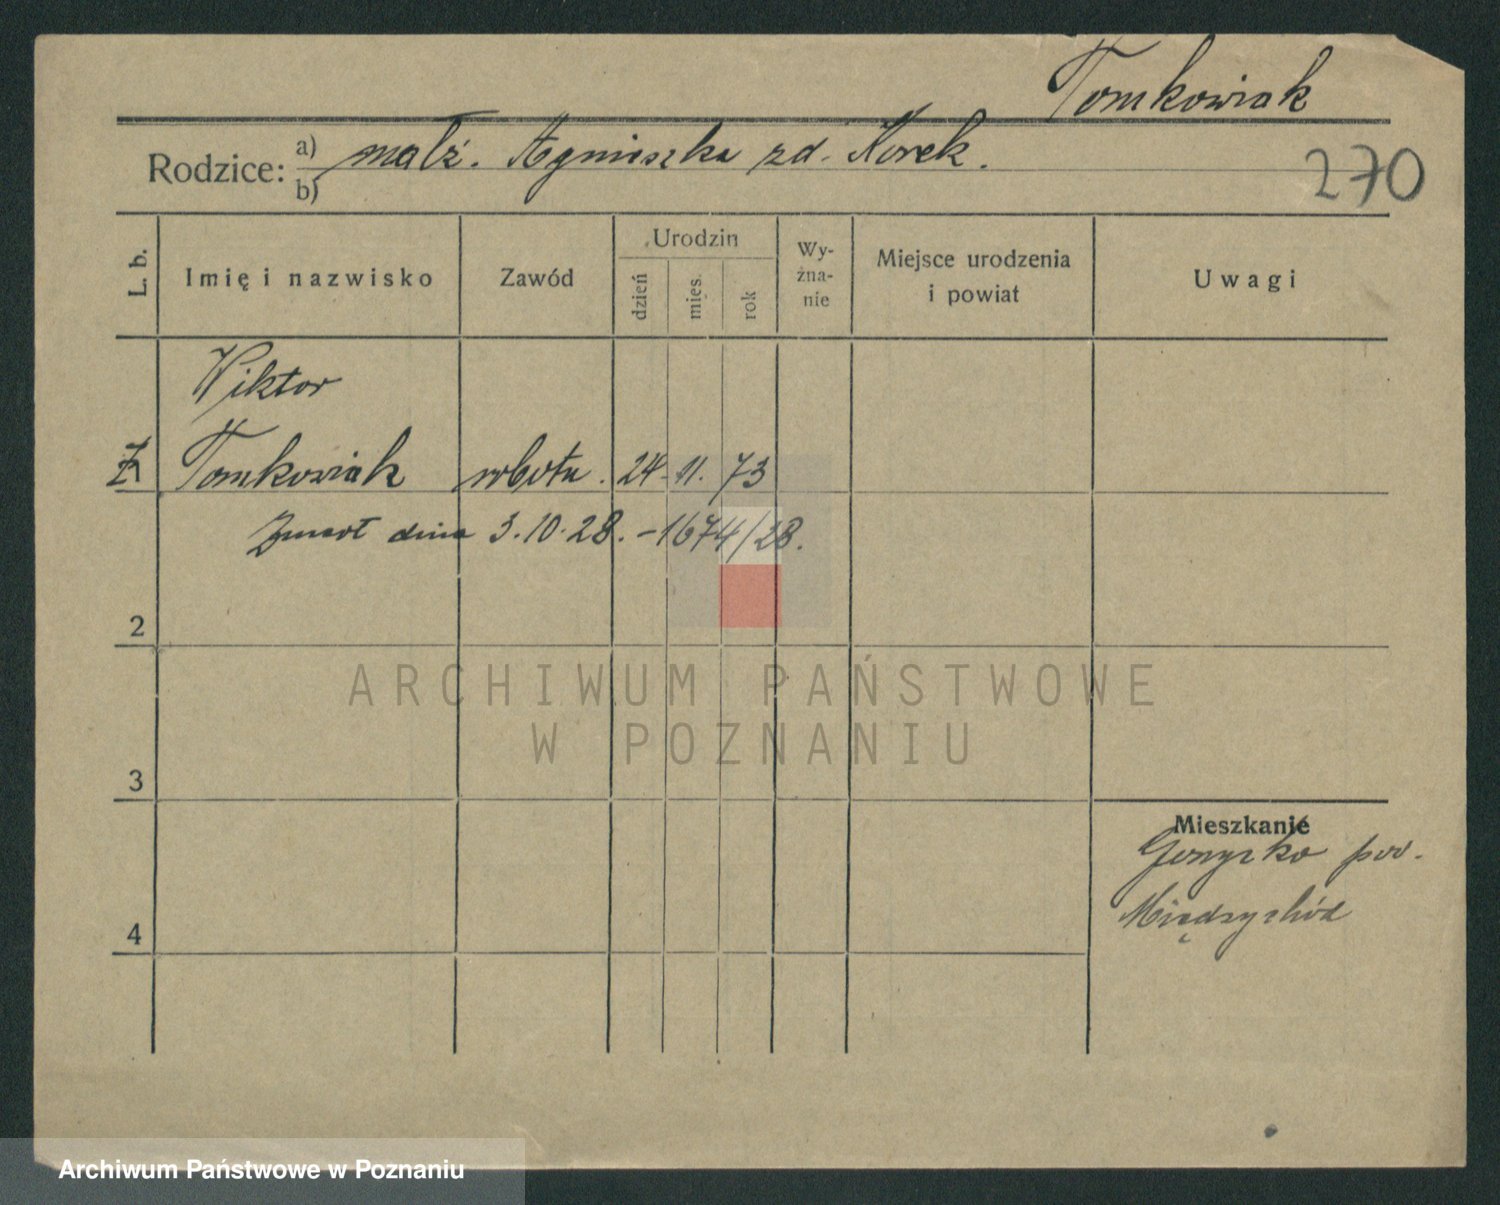 Tomkowiak
Rodzice: a) małż. Agnieszka zd. Korek.
b)
270
L. b.
Imię i nazwisko
Zawód
Urodzin
dzień
mies.
rok
Wy-
żna-
nie
Miejsce urodzenia
i powiat
Uwagi
Wiktor
Tomkowiak robotn. 24. 11. 73
Zmarł dnia 3.10.28. - 1674/28.
2
ARCHIWUM PAŃSTWOWE
W POZNANIU
3
Mieszkanie
pow.
Międzychód
4
Archiwum Państwowe w Poznaniu